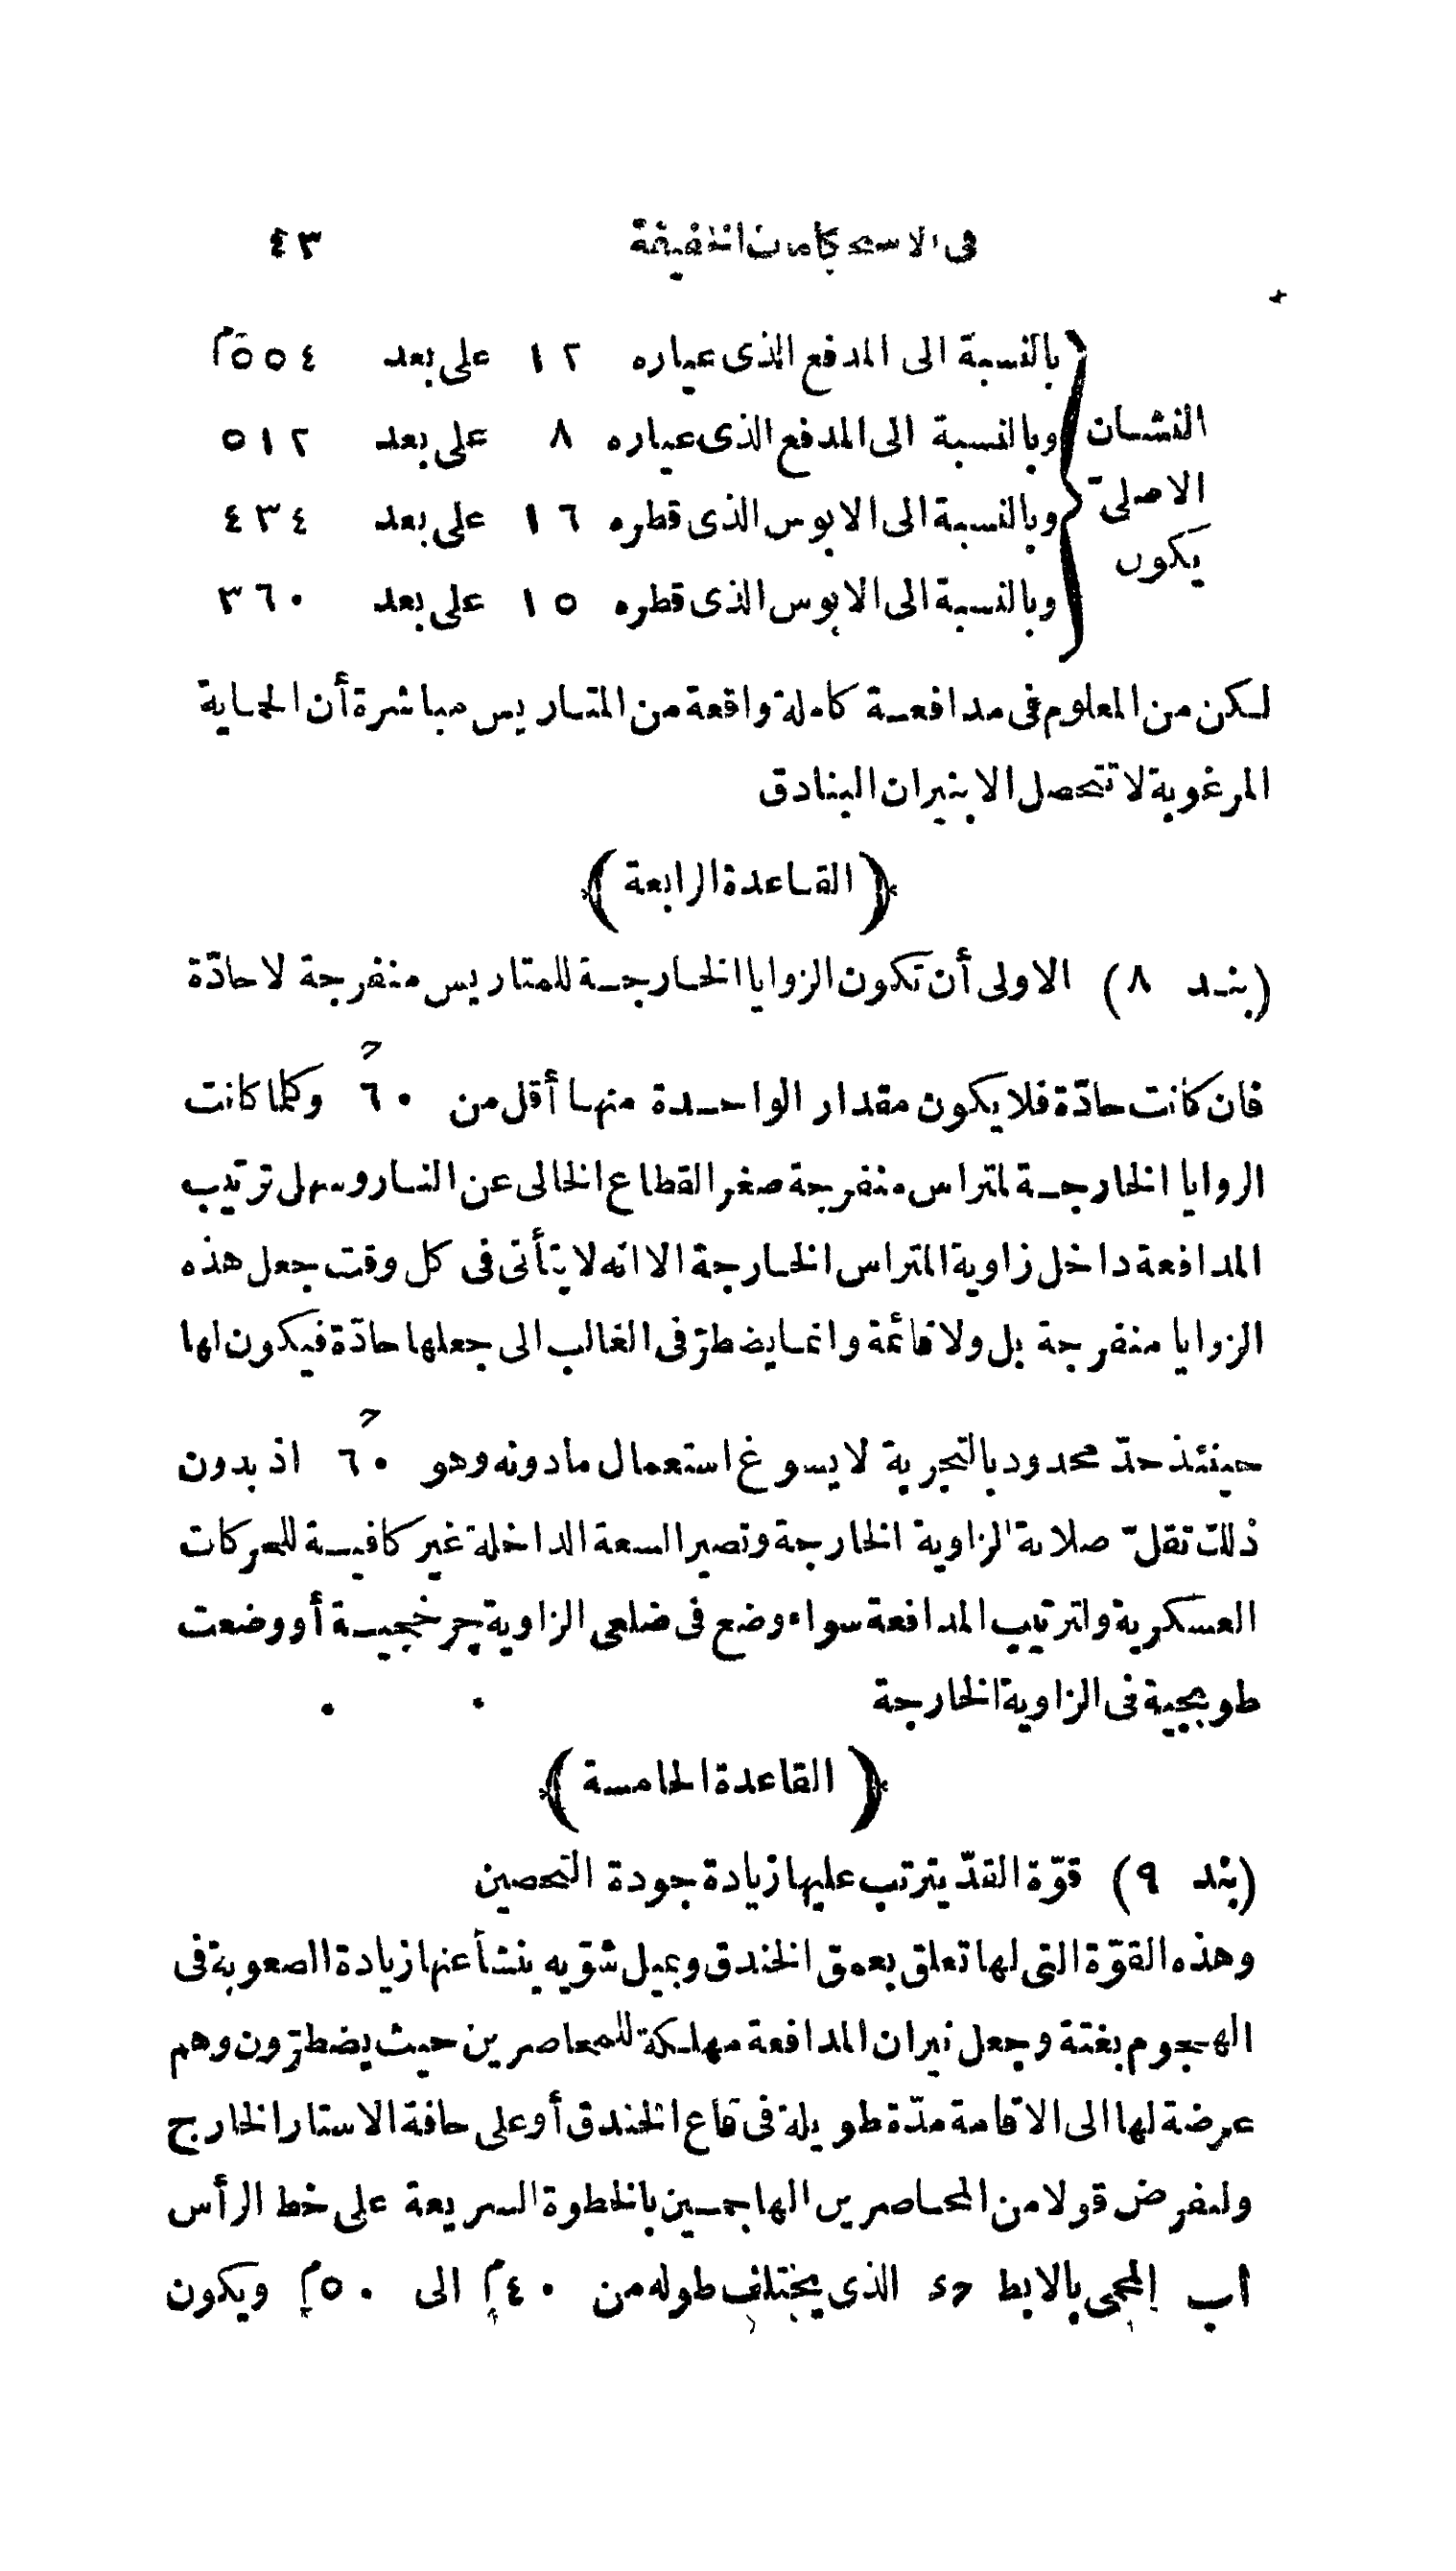 فى الاستحكامات الخفيفة ٤٣
النشان
الاصلىّ
يكون
بالنسبة الى المدفع الذى عياره ١٢ على بعد ٥٥٤م
وبالنسبة الى المدفع الذى عياره ٨ على بعد ٥١٢
وبالنسبة الى الابوس الذى قطره ١٦ على بعد ٤٣٤
وبالنسبة الى الابوس الذى قطره ١٥ على بعد ٣٦٠
لكن من المعلوم فى مدافعة كاملة واقعة من المتاريس مباشرة أن الحماية
المرغوبة لا تتحصل الا بنيران البنادق
﴿القاعدة الرابعة﴾
(بند ٨) الاولى أن تكون الزوايا الخارجة للمتاريس منفرجة لا حادّة
فان كانت حادّة فلا يكون مقدار الواحدة منها أقل من ٦٠ْ وكلما كانت
الزوايا الخارجة لمتراس منفرجة صغر القطاع الخالى عن النار وسهل ترتيب
المدافعة داخل زاوية المتراس الخارجة الا انه لا يتأتى فى كل وقت جعل هذه
الزوايا منفرجة بل ولا قائمة وانما يضطرّ فى الغالب الى جعلها حادّة فيكون لها
حينئذ حدّ محدود بالتجربة لا يسوغ استعمال مادونه وهو ٦٠ْ اذ بدون
ذلك تقلّ صلابة الزاوية الخارجة وتصير السعة الداخلة غير كافية للحركات
العسكرية ولترتيب المدافعة سواء وضع فى ضلعى الزاوية چرخجية أو وضعت
طوبجية فى الزاوية الخارجة
﴿القاعدة الخامسة﴾
(بند ٩) قوّة القدّ يترتب عليها زيادة جودة التحصين
وهذه القوّة التى لها تعلق بعمق الخندق وبميل شقويه ينشأ عنها زيادة الصعوبة فى
الهجوم بغتة وجعل نيران المدافعة مهلكة للمحاصرين حيث يضطرّون وهم
عرضة لها الى الاقامة مدّة طويلة فى قاع الخندق أو على حافة الاستار الخارج
ولنفرض قولا من المحاصرين الهاجمين بالخطوة السريعة على خط الرأس
اب المحمى بالابط حء الذى يختلف طوله من ٤٠م الى ٥٠م ويكون